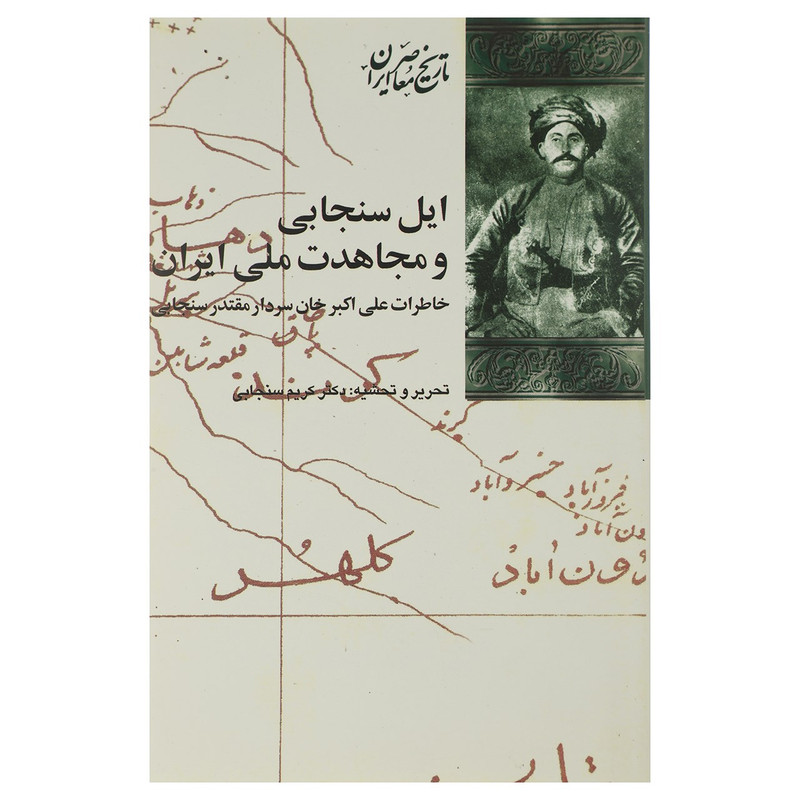 تاریخ معاصر ایران
ایل سنجابی
و مجاهدت ملی ایران
خاطرات علی اکبر خان سردار مقتدر سنجابی
تحریر و تحشیه: دکتر کریم سنجابی
زهاب
قلعه شاهین
کرند
خسروآباد
فیروزآباد
کلهر